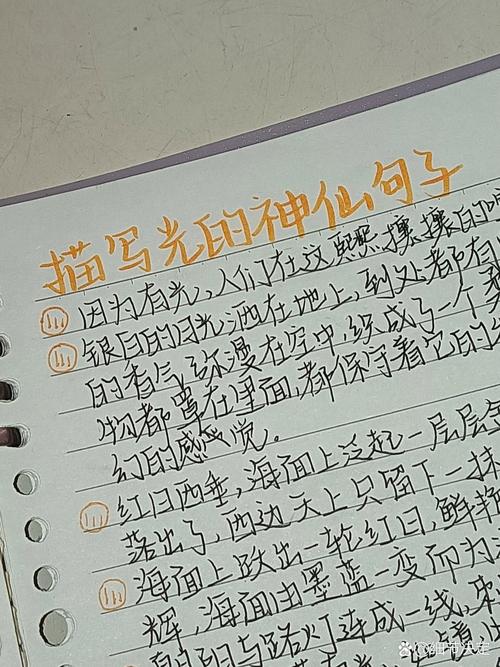 描写光的神仙句子
因为有光,人们在这熙熙攘攘的
银白的月光洒在地上,到处都有
的香气弥漫在空中,织成了一个
物都罩在里面,都保守着它的
幻的感觉。
红日西垂,海面上泛起一层层
落出了,西边天上只留下一抹
海面上跃出一轮红日,鲜艳
辉,海面由墨蓝一变而为
的与路灯连成一线,